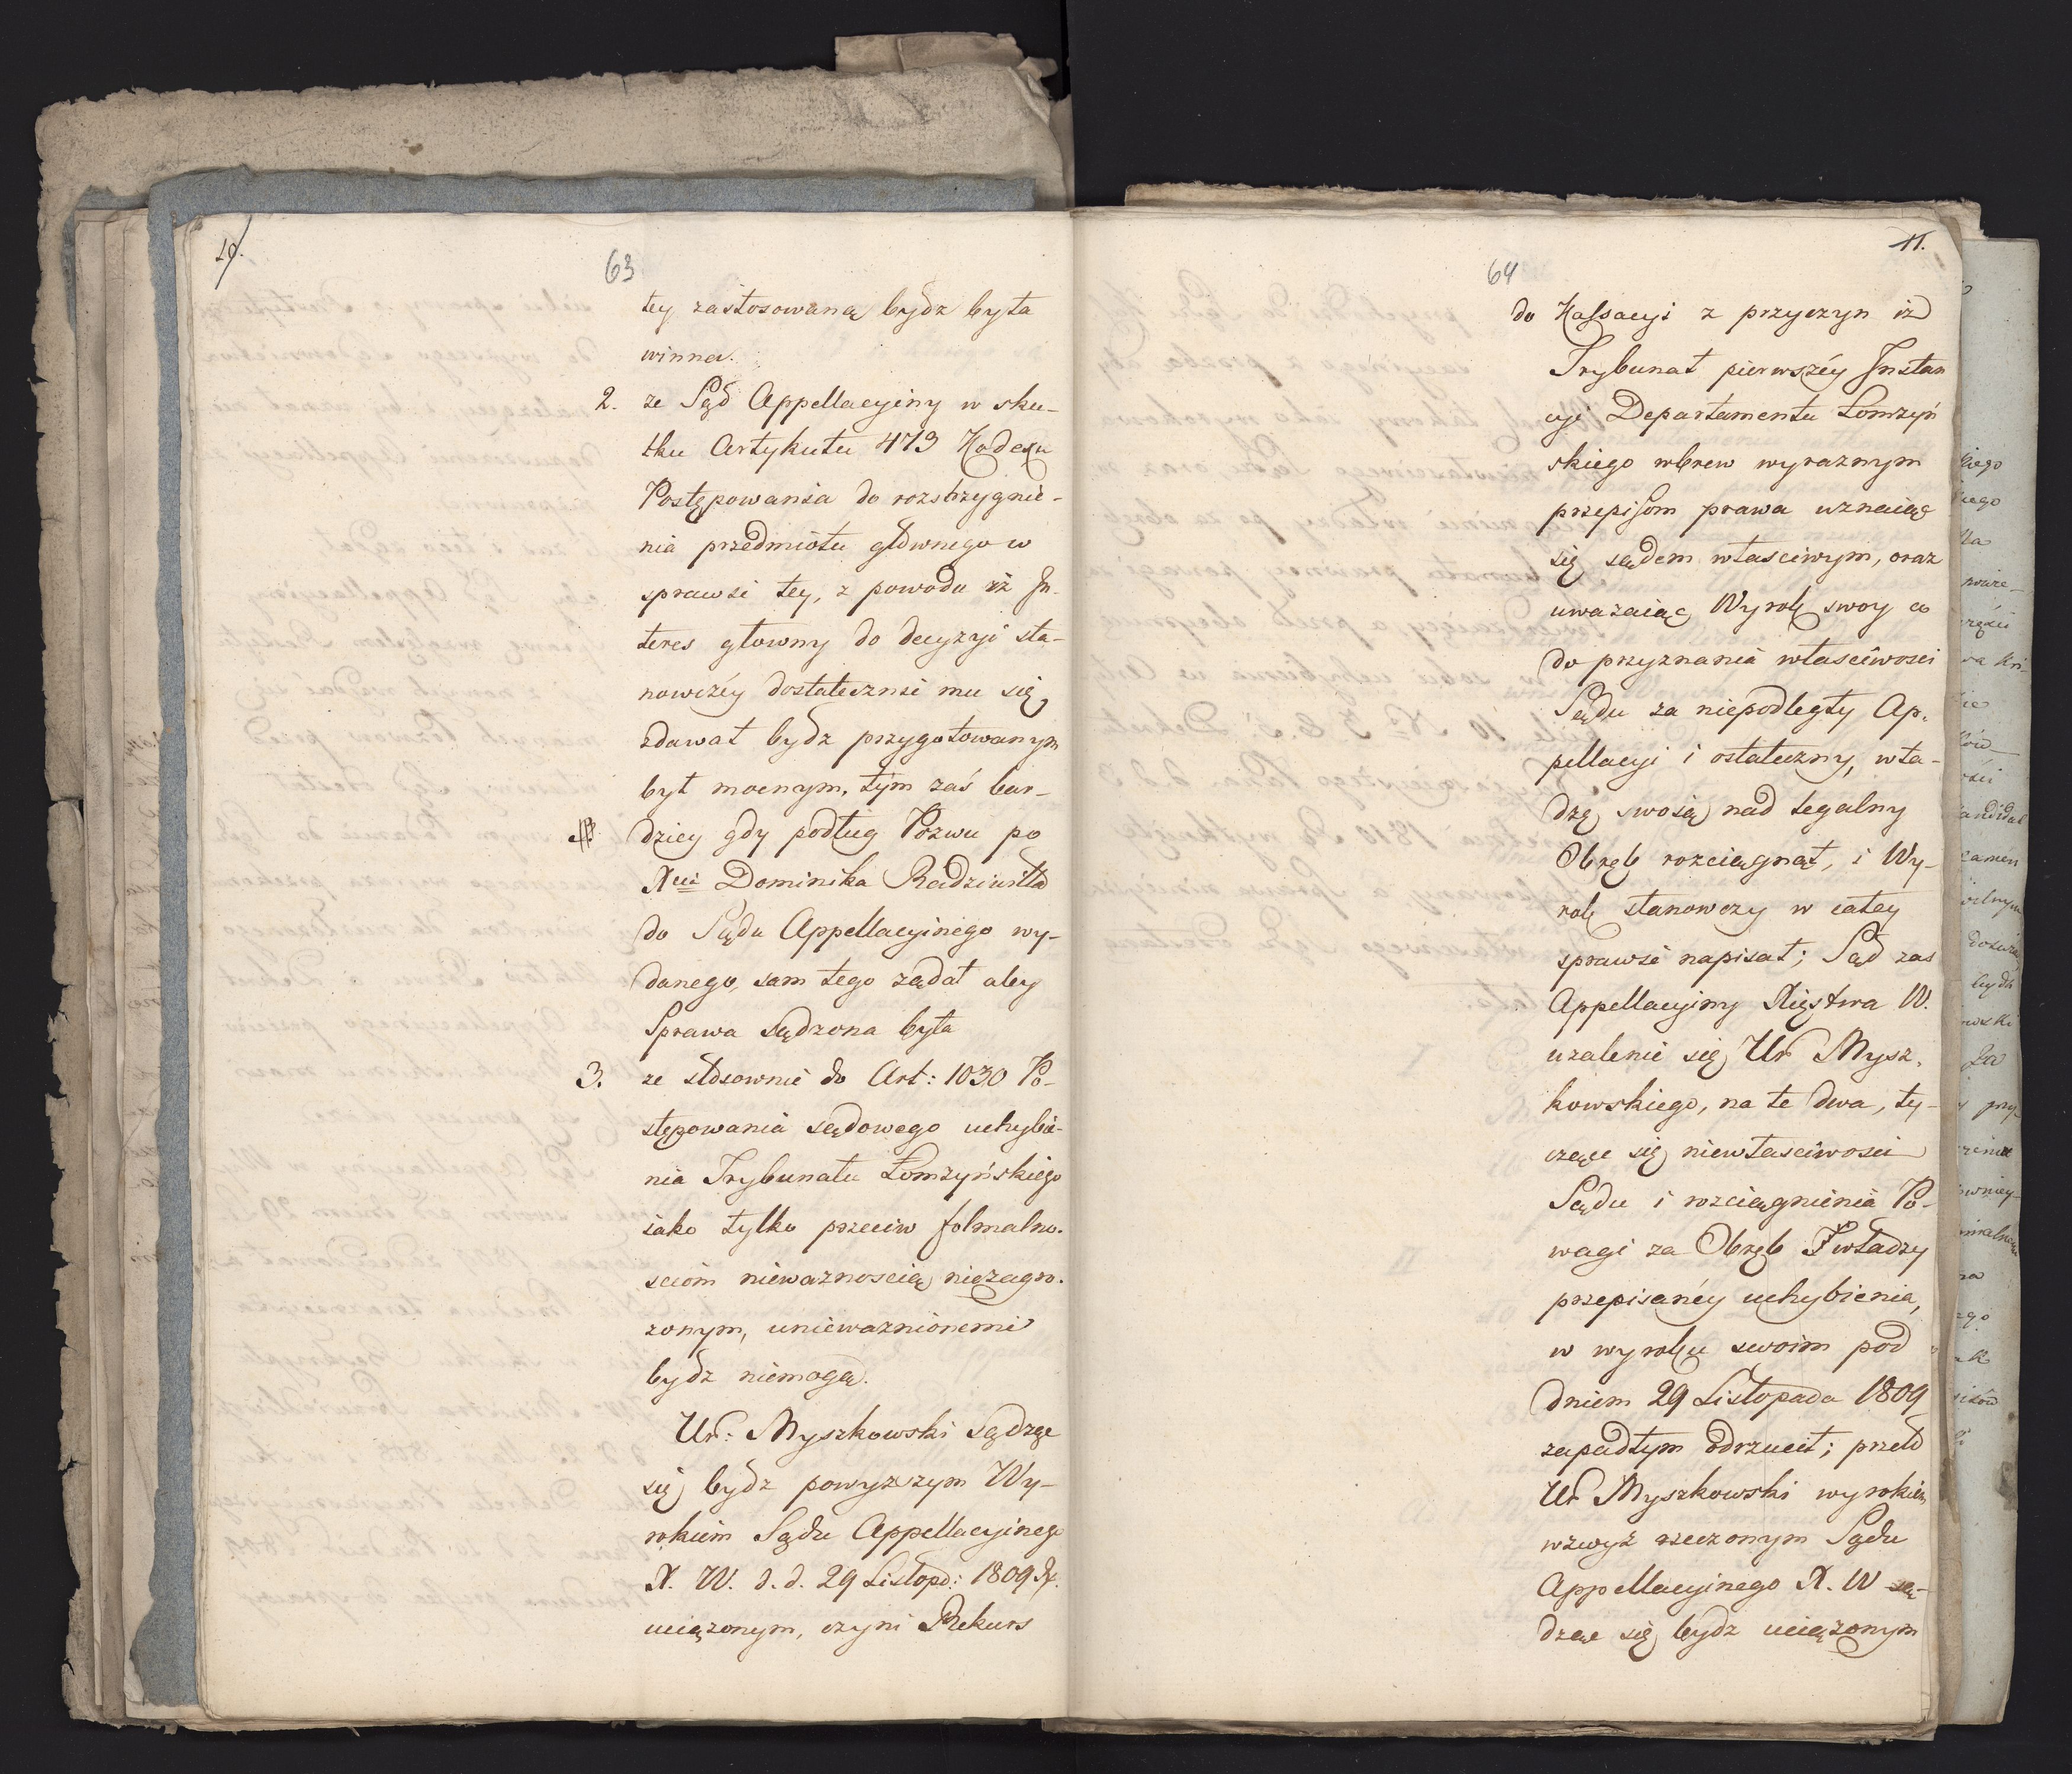 10.
63
tey zastosowaną bydz była
winna.
2. ze Sąd Appellacyiny w sku-
tku Artykułu 473 Kodexu
Postępowania do rozstrzygnie-
nia przedmiotu głównego w
sprawie tey, z powodu iż In-
teres głowny do decyzyi sta-
nowczéy dostatecznie mu się
zdawał bydz przygotowanym
był mocnym, tym zaś bar-
dziey gdy podług Pozwu po
Xcia Dominika Radziwiłła
do Sądu Appellacyinego wy-
danego, sam tego ządał aby
Sprawa sądzona była
3. ze stósownie do Art: 1030 Po-
stępowania sądowego uchybie-
nia Trybunału Łomżyńskiego
iako tylko przeciw folmalno-
sciom niewaznoscią niezagro-
zonym, uniewaznionemi
bydz niemogą.
Ur: Myszkowski Sądząc
się bydz powyższym Wy-
rokiem Sądu Appellacyinego
X. W. d. d. 29 Listopd: 1809 R.
uciązonym, czyni Rekurs
11.
64
do Kassacyi z przyczyn iz
Trybunał pierwszéy Instan
cyi Departamentu Lomżyń
skiego wbrew wyraznym
przepisom prawa uznaiąc
się sądem własciwym, oraz
uwazaiąc Wyrok swoy co
do przyznania własciwosci
Sądu za niepodległy Ap-
pellacyi i ostateczny, wła-
dzę swoią nad legalny
Obręb rozciągnął, i Wy-
rok stanowczy w całey
sprawie napisał; Sąd zas
Appellacyiny Xięstwa W.
uzalenie się Ur Mysz-
kowskiego, na te dwa, ty-
czące się niewłasciwosci
Sądu i rozciągnienia Po-
wagi za Obręb władzy
przepisanéy uchybienia,
w wyroku swoim pod
dniem 29 Listopada 1809
zapadłym odrzucił; przeto
Ur Myszkowski wyrokiem
wzwyż rzeczonym Sądu
Appellacyinego X. W są-
dząc się bydz uciązonym